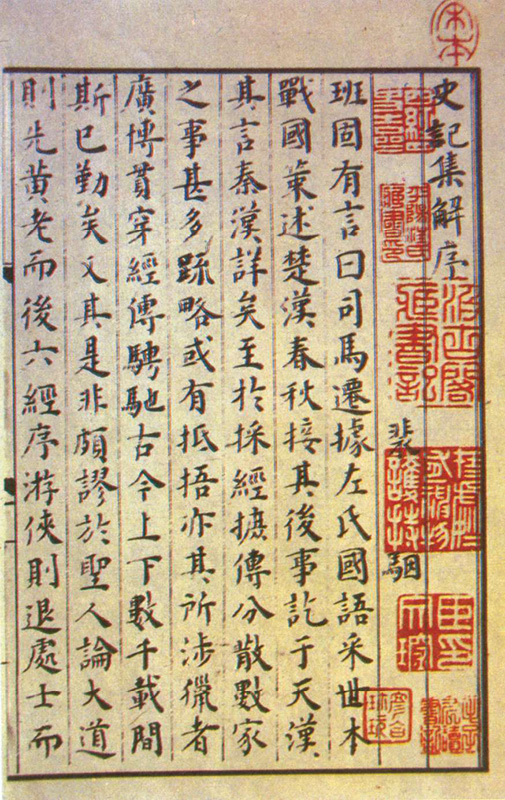 史記集解序
裴駰
班固有言曰司馬遷據左氏國語采世本
戰國策述楚漢春秋接其後事訖于天漢
其言秦漢詳矣至於採經摭傳分散數家
之事甚多踈略或有抵捂亦其所涉獵者
廣博貫穿經傳騁馳古今上下數千載間
斯已勤矣又其是非頗謬於聖人論大道
則先黃老而後六經序游俠則退處士而
宋本